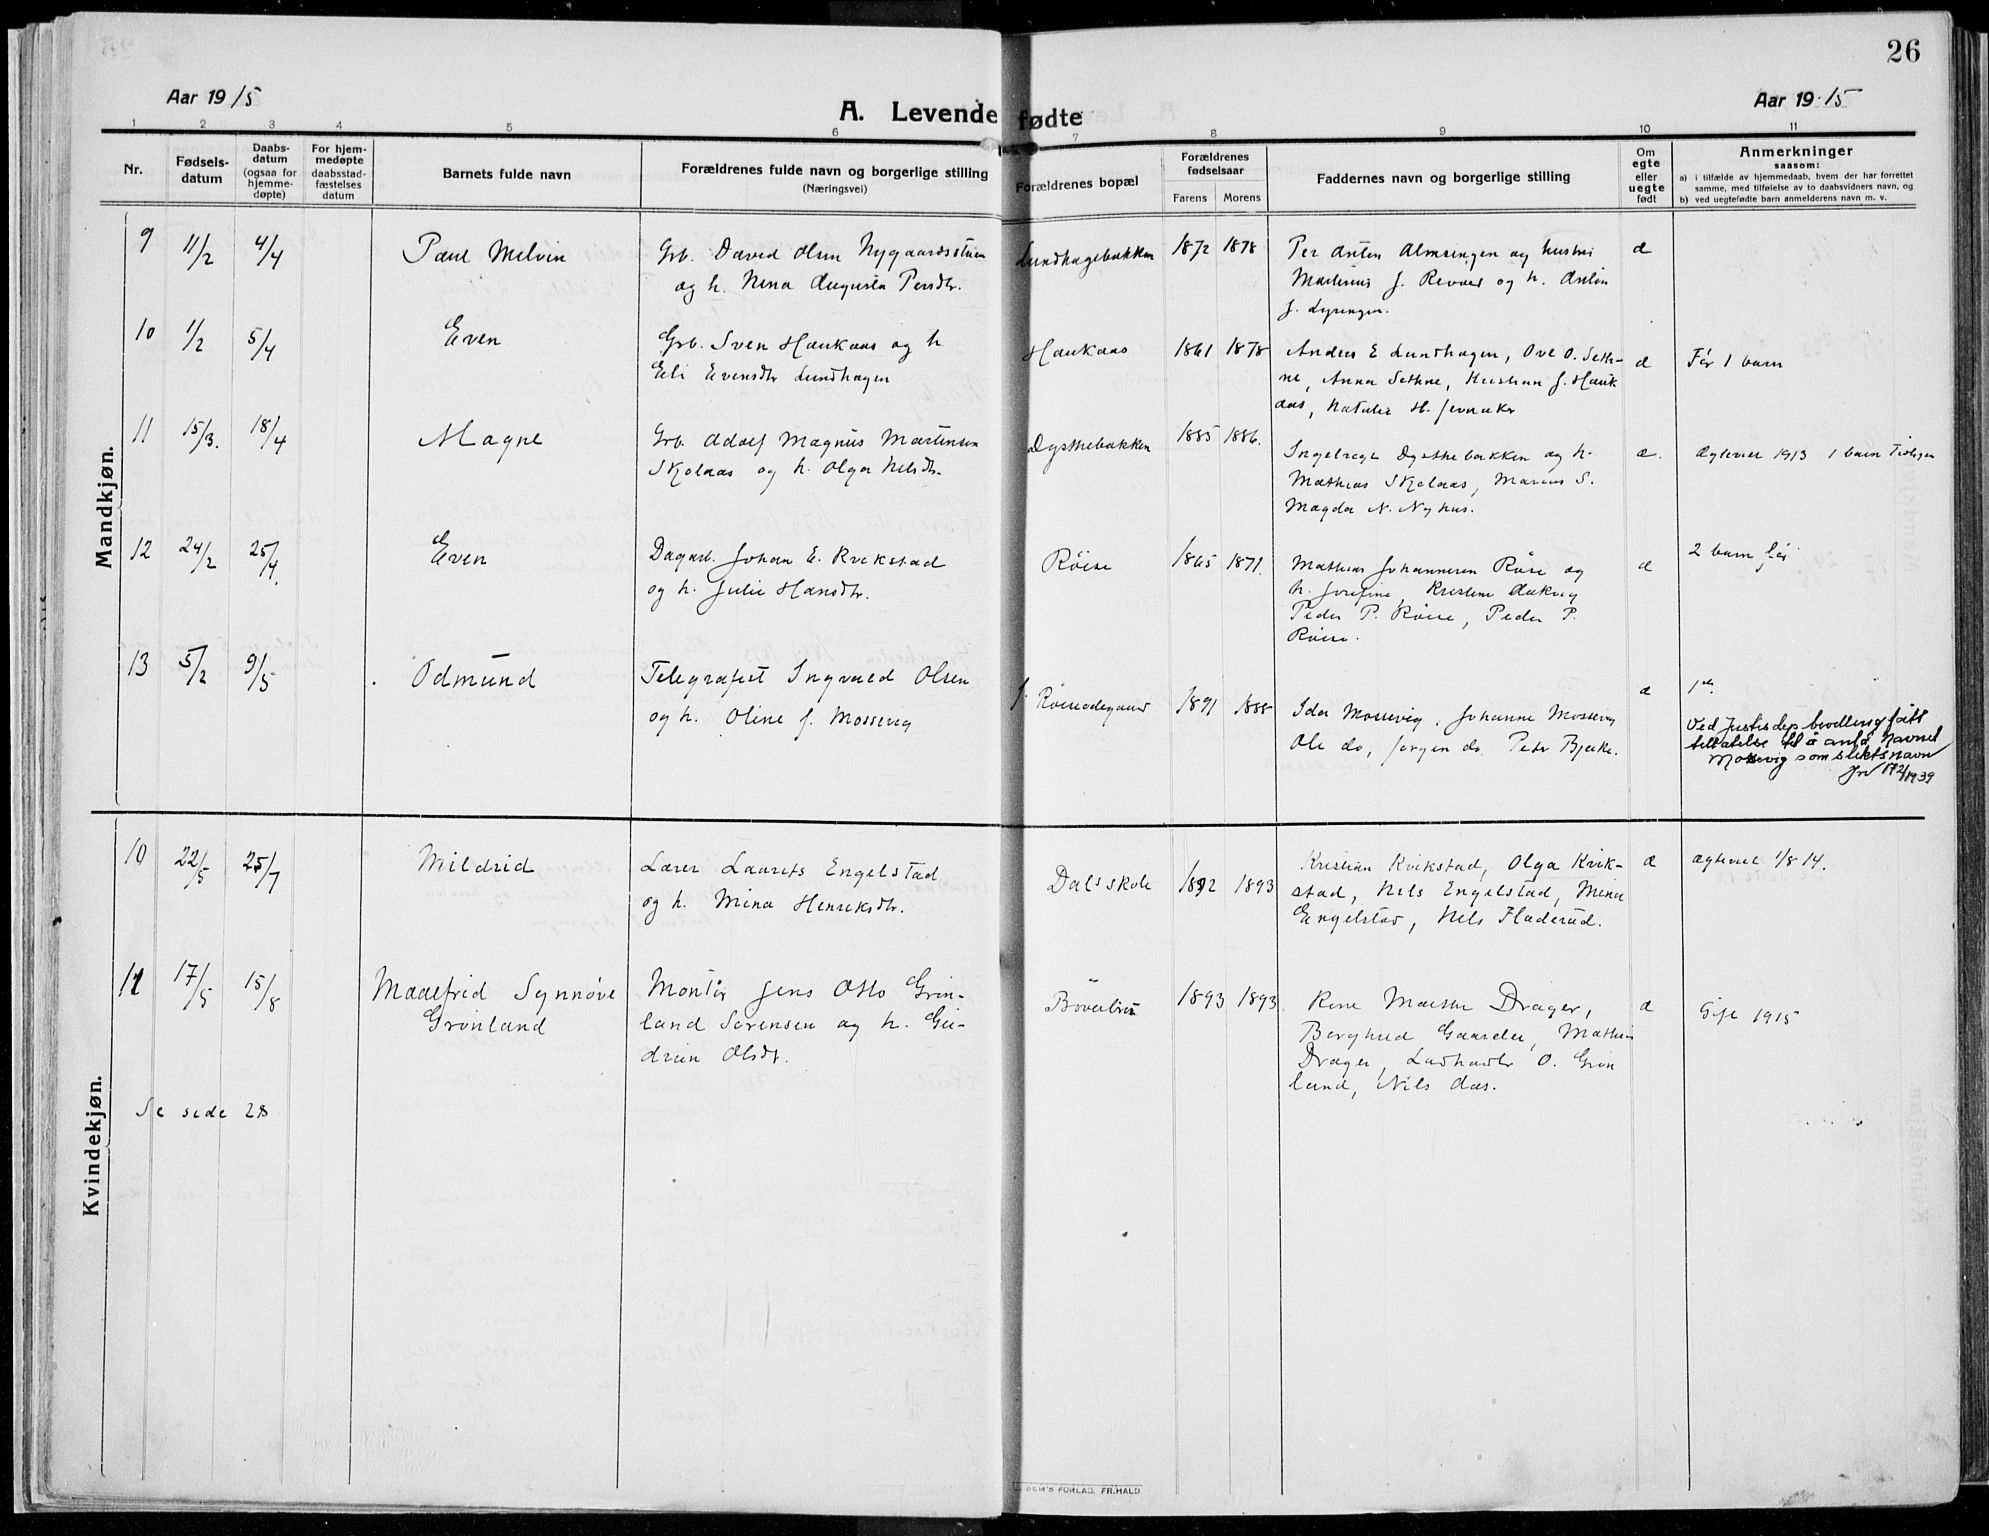 26
Aar 1915
A. Levende fødte
Aar 1915
1 2 3 4 5 6 7 8 9 10 11
Nr.
Fødsels-
datum
Daabs-
datum
(ogsaa for
hjemme-
døpte)
For hjem-
medøpte
daabsstad-
fæstelses
datum
Barnets fulde navn
Forældrenes fulde navn og borgerlige stilling
(Næringsvei)
Forældrenes bopæl
Forældrenes
fødselsaar
Farens Morens
Faddernes navn og borgerlige stilling
Om
egte
eller
uegte
født
Anmerkninger
saasom:
a) i tilfælde av hjemmedaab, hvem der har forrettet
samme, med tilføielse av to daabsvidners navn, og
b) ved uegtefødte barn anmelderens navn m. v.
Mandkjøn.
9 11/2 4/4 Paul Melvin
Grb. David Olsen Nygaardsstuen
og h. Nina Augusta Persdtr.
Lundhagebakken 1872 1878
Per Anton Almsengen og hustru
Martinius J. Revaas og h. Anton
J. Lysengen.
æ
10 1/2 5/4 Even
Grb. Sven Haukaas og h
Eli Evensdtr Lundhagen
Haukaas 1861 1878
Anders E Lundhagen, Ove O. Seth-
ne, Anna Sethne, Kristian J. Hauk
aas, Natalie H. Jevnaker
æ Før 1 barn
11 15/3. 18/4 Magne
Grb. Adolf Magnus Martinsen
Skjelaas og h. Olga Nelsdtr.
Dysthebakken 1885 1886.
Ingebregt Dysthebakken og h.
Mathias Skjelaas, Marius S.
Magda N. Nyhus.
æ. Ægteviet 1913 1 barn tidligere
12 24/2 25/4. Even
Dagarb. Johan E. Kvikstad
og h. Julie Hansdtr.
Røise 1865 1871.
Mathias Johannesen Røise og
h. Josefine, Kristine Aakvig
Peder P. Røise, Peder P.
Røise.
æ 2 barn før
13 5/2 9/5 Odmund
Telegrafist Ingvald Olsen
og h. Oline J. Mossevig
Røiseødegaard 1891 1888
Ida Mossevig, Johanne Mossevig
Ole do, Jørgen do. Peter Bjerke.
æ 1ste
Ved Justisdep. bevilling fått
tillatelse til å anta navnet
Mossevig som slektsnavn
Jnr 172/1939
Kvindekjøn.
10 22/5 25/7 Mildrid
Lærer Laurits Engelstad
og h. Mina Henriksdtr.
Dals skole 1892 1893
Kristian Kvikstad, Olga Kvik-
stad, Nils Engelstad, Mina
Engelstad, Nils Fladerud.
æ ægteviet 1/8 14.
11 17/5 15/8 Maalfrid Synnøve
Grønland
Montør Jens Otto Grøn-
land Sørensen og h. Gu-
drun Olsdtr.
Bøverbru 1893 1893.
Rine Marthe Dræger,
Borghild Gaarder, Mathias
Dræger, Ladhandler O. Grøn
land, Nils das.
æ Gift 1915
Se side 28
SEM'S FORLAG, FR.HALD